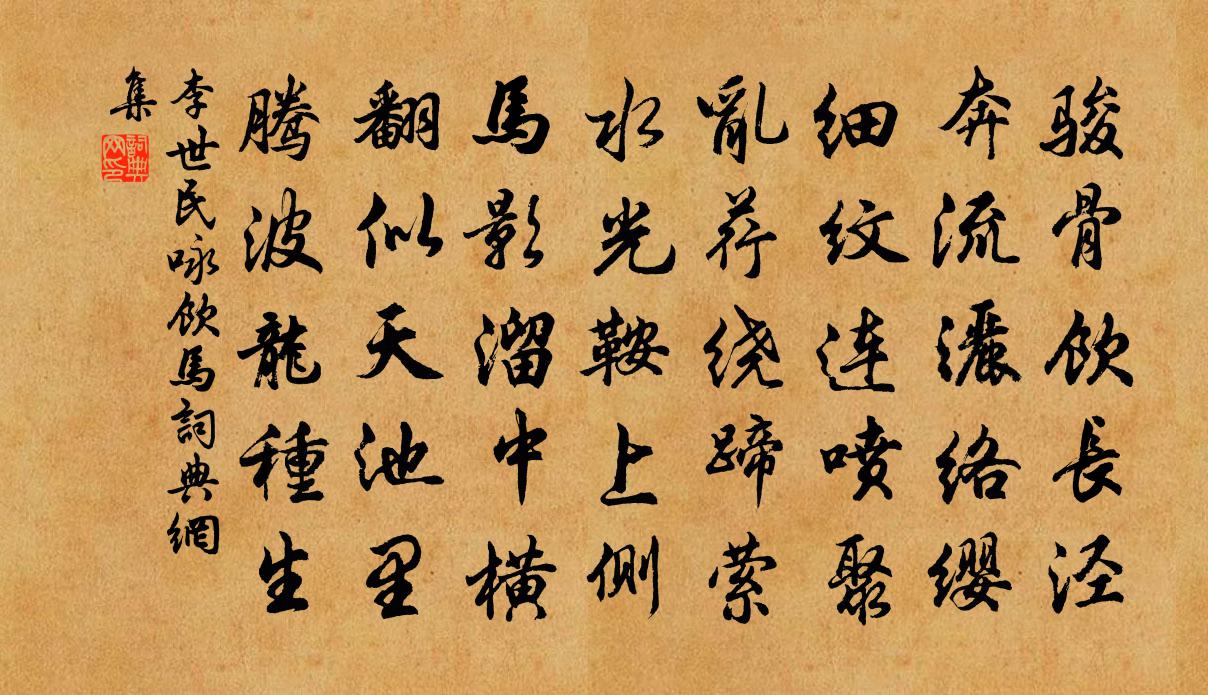 骏骨饮長泾
奔流灑络缨
细纹連喷聚
亂荇绕蹄萦
水光鞍上側
馬影溜中橫
翻似天池里
騰波龍種生
李世民咏飲馬詞典網
集
詞典
网印